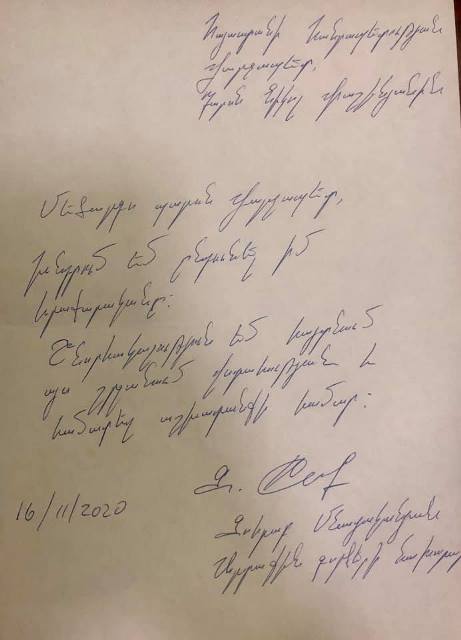 Հայաստանի Հանրապետության
վարչապետ,
պարոն Նիկոլ Փաշինյանին
Մեծարգո պարոն վարչապետ,
խնդրում եմ ընդունել իմ
հրաժարականը:
Շնորհակալություն եմ հայտնում
այս շրջանում վստահության և
համատեղ աշխատանքի համար:
16/11/2020
Զ.
Զոհրաբ Մնացականյան
Արտաքին գործերի նախարար